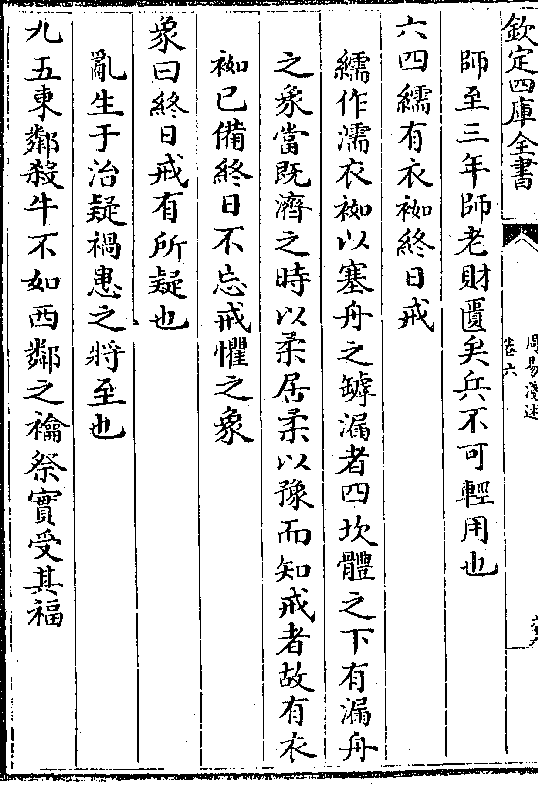 欽定四庫全書
周易淺述
卷六
師至三年師老財匱矣兵不可輕用也
六四繻有衣袽終日戒
繻作濡衣袽以塞舟之罅漏者四坎體之下有漏舟
之象當既濟之時以柔居柔以豫而知戒者故有衣
袽已備終日不忘戒懼之象
象曰終日戒有所疑也
亂生于治疑禍患之將至也
九五東鄰殺牛不如西鄰之禴祭實受其福